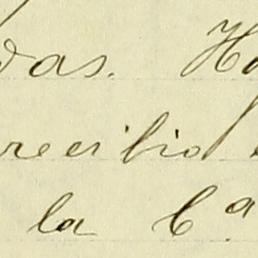 das. Ha
recibio
la C.ª